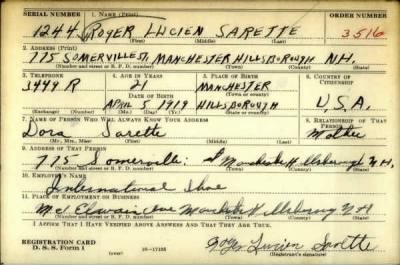 SERIAL NUMBER 1. NAME (Print) ORDER NUMBER
1244 ROGER LUCIEN SARETTE 3516
(First) (Middle) (Last)
2. ADDRESS (Print)
775 SOMERVILLE ST. MANCHESTER HILLSBOROUGH N.H.
(Number and street or R. F. D. number) (Town) (County) (State)
3. TELEPHONE 4. AGE IN YEARS 5. PLACE OF BIRTH 6. COUNTRY OF CITIZENSHIP
3499 R 21 MANCHESTER
DATE OF BIRTH (Town or county)
APRIL 5 1919 HILLSBOROUGH U.S.A.
(Exchange) (Number) (Mo.) (Day) (Yr.) (State or country)
7. NAME OF PERSON WHO WILL ALWAYS KNOW YOUR ADDRESS 8. RELATIONSHIP OF THAT PERSON
Dora Sarette Mother
(Mr., Mrs., Miss) (First) (Middle) (Last)
9. ADDRESS OF THAT PERSON
775 Somerville St Manchester Hillsborough N.H.
(Number and street or R. F. D. number) (Town) (County) (State)
10. EMPLOYER'S NAME
International Shoe
11. PLACE OF EMPLOYMENT OR BUSINESS
Mc Elwain Ave Manchester Hillsboroug N H
(Number and street or R. F. D. number) (Town) (County) (State)
I AFFIRM THAT I HAVE VERIFIED ABOVE ANSWERS AND THAT THEY ARE TRUE.
REGISTRATION CARD
D. S. S. Form 1 16-17105 Roger Lucien Sarette
(Registrant's signature)